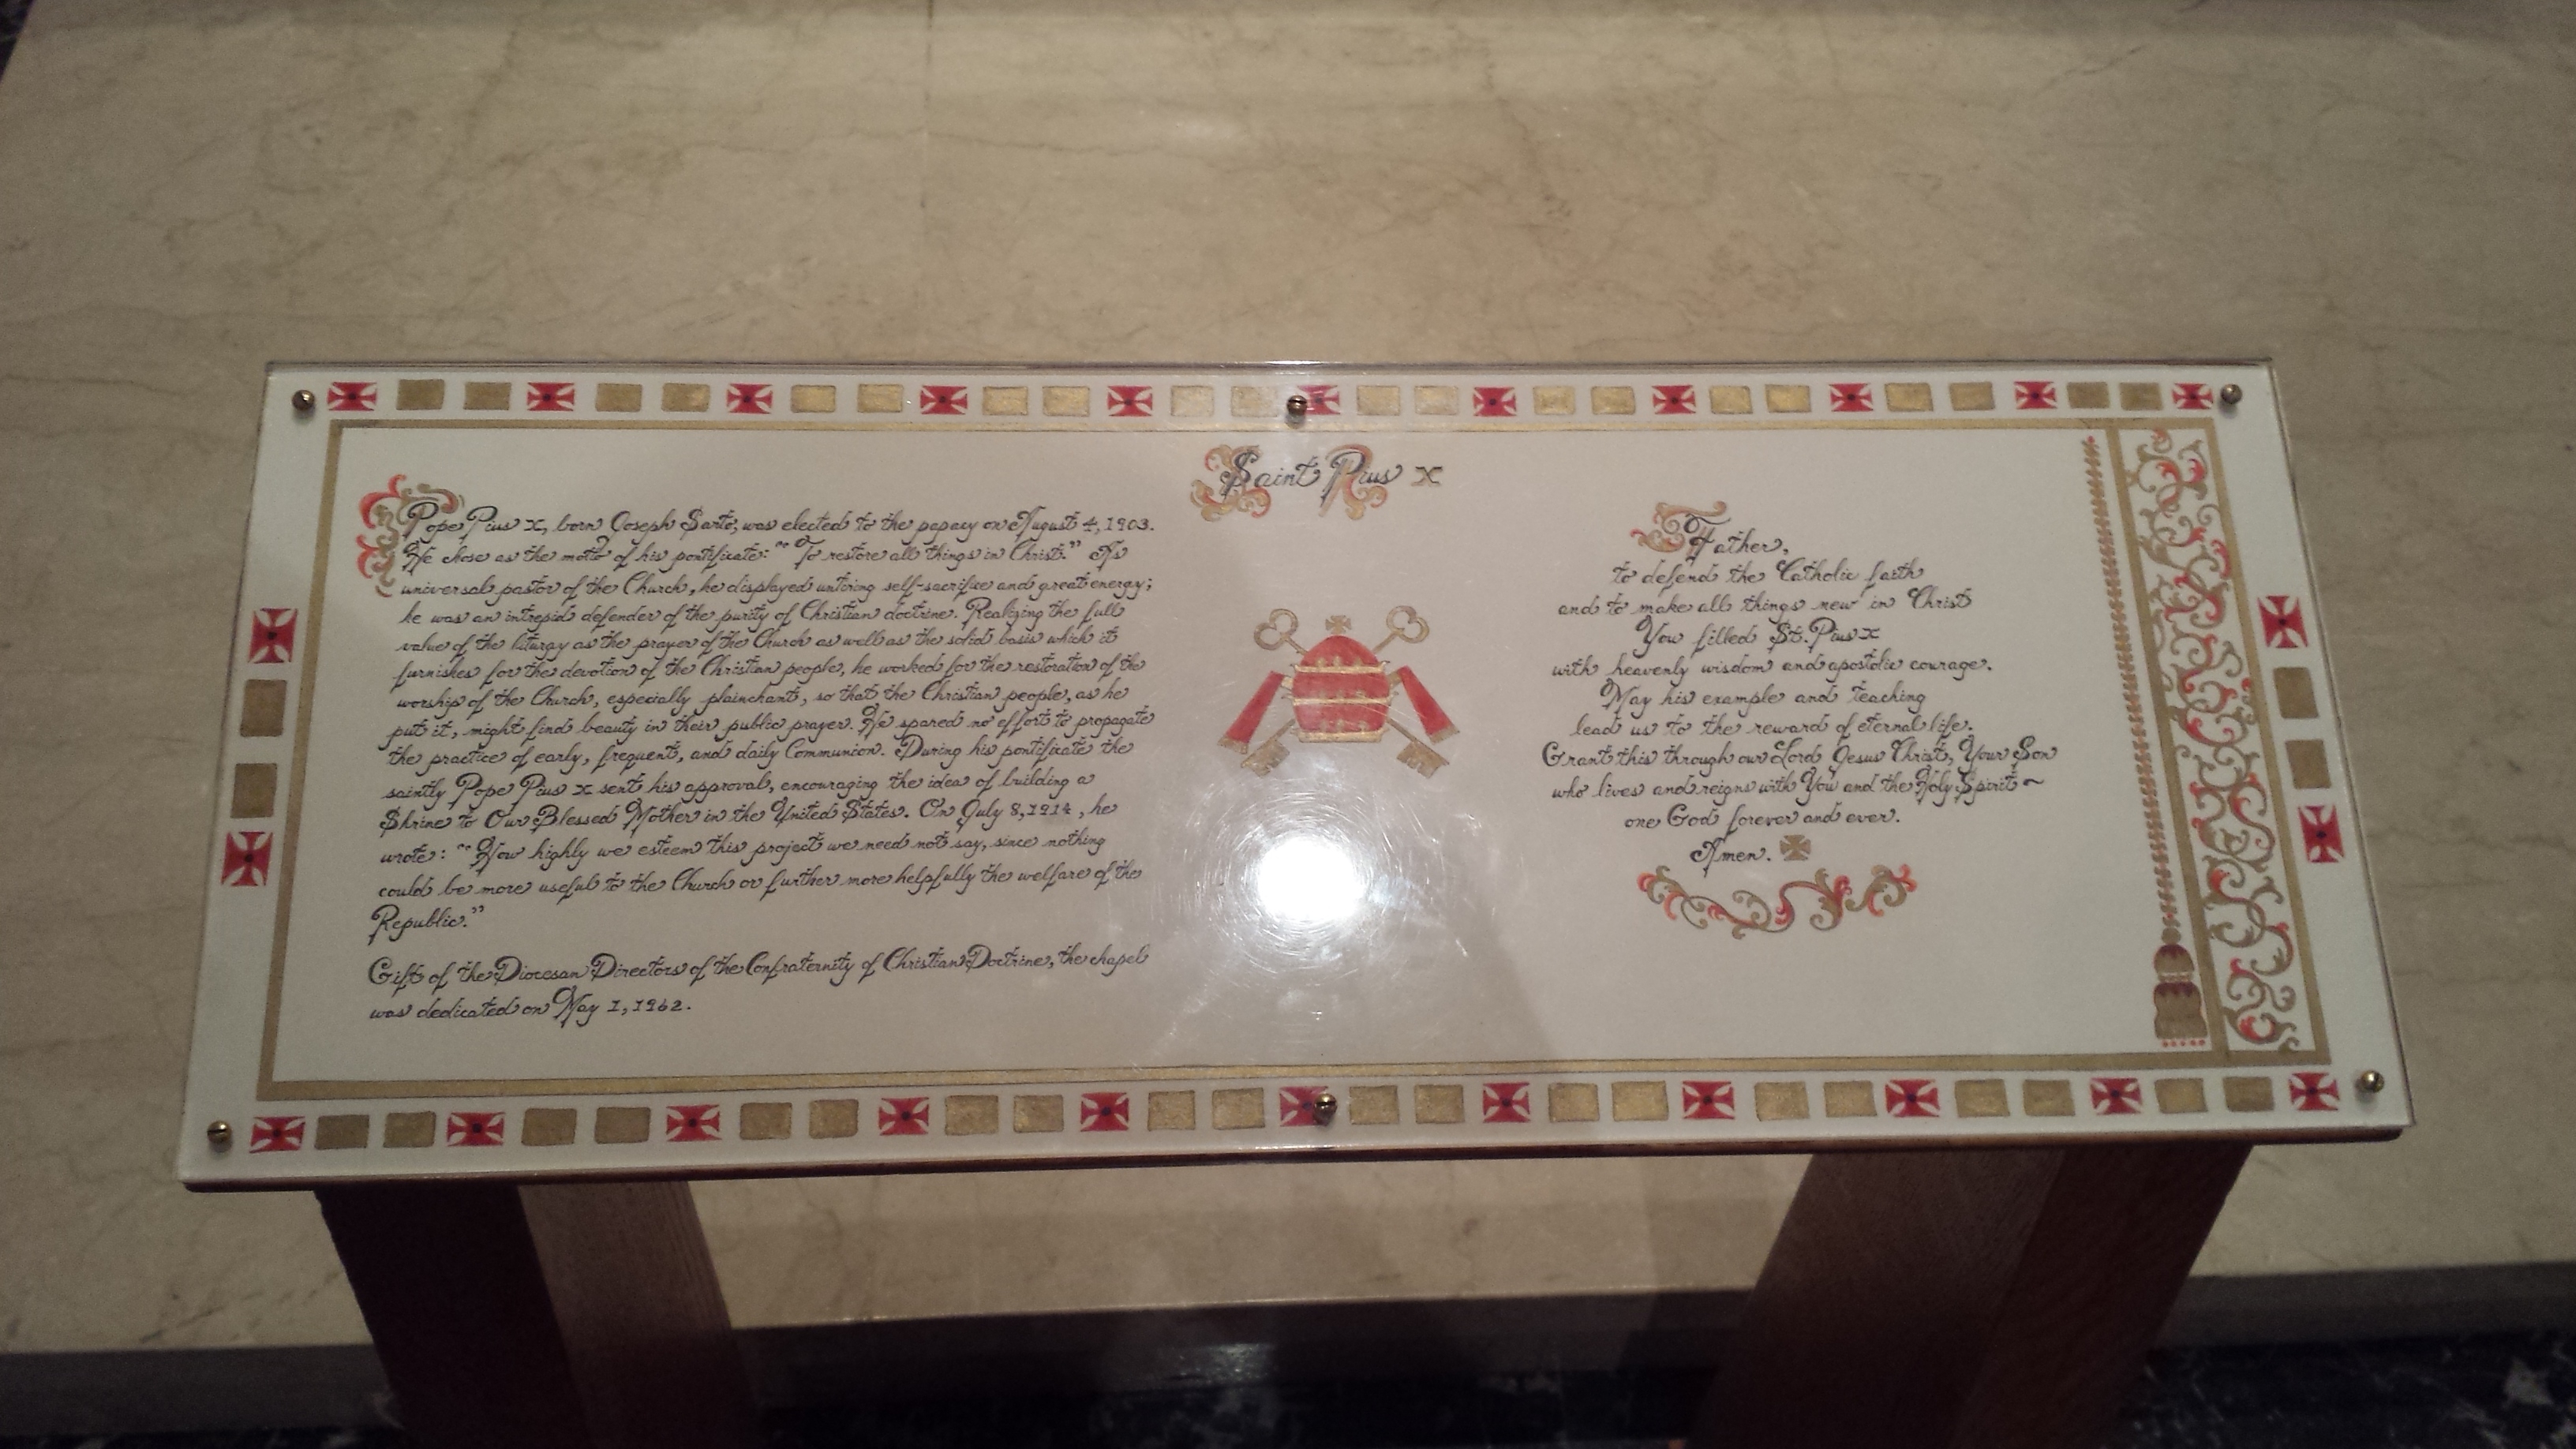 Saint Pius X
Pope Pius X, born Joseph Sarto, was elected to the papacy on August 4, 1903.
He chose as the motto of his pontificate: "To restore all things in Christ." As
universal pastor of the Church, he displayed untiring self-sacrifice and great energy;
he was an intrepid defender of the purity of Christian doctrine. Realizing the full
value of the liturgy as the prayer of the Church as well as the solid basis which it
furnishes for the devotion of the Christian people, he worked for the restoration of the
worship of the Church, especially plainchant, so that the Christian people, as he
put it, might find beauty in their public prayer. He spared no effort to propagate
the practice of early, frequent, and daily Communion. During his pontificate the
saintly Pope Pius X sent his approval, encouraging the idea of building a
Shrine to Our Blessed Mother in the United States. On July 8, 1914, he
wrote: "How highly we esteem this project we need not say, since nothing
could be more useful to the Church or further more helpfully the welfare of the
Republic."
Gift of the Diocesan Directors of the Confraternity of Christian Doctrine, the chapel
was dedicated on May 1, 1962.
Father,
to defend the Catholic faith
and to make all things new in Christ
You filled St. Pius X
with heavenly wisdom and apostolic courage.
May his example and teaching
lead us to the reward of eternal life.
Grant this through our Lord Jesus Christ, Your Son
who lives and reigns with You and the Holy Spirit ~
one God forever and ever.
Amen.